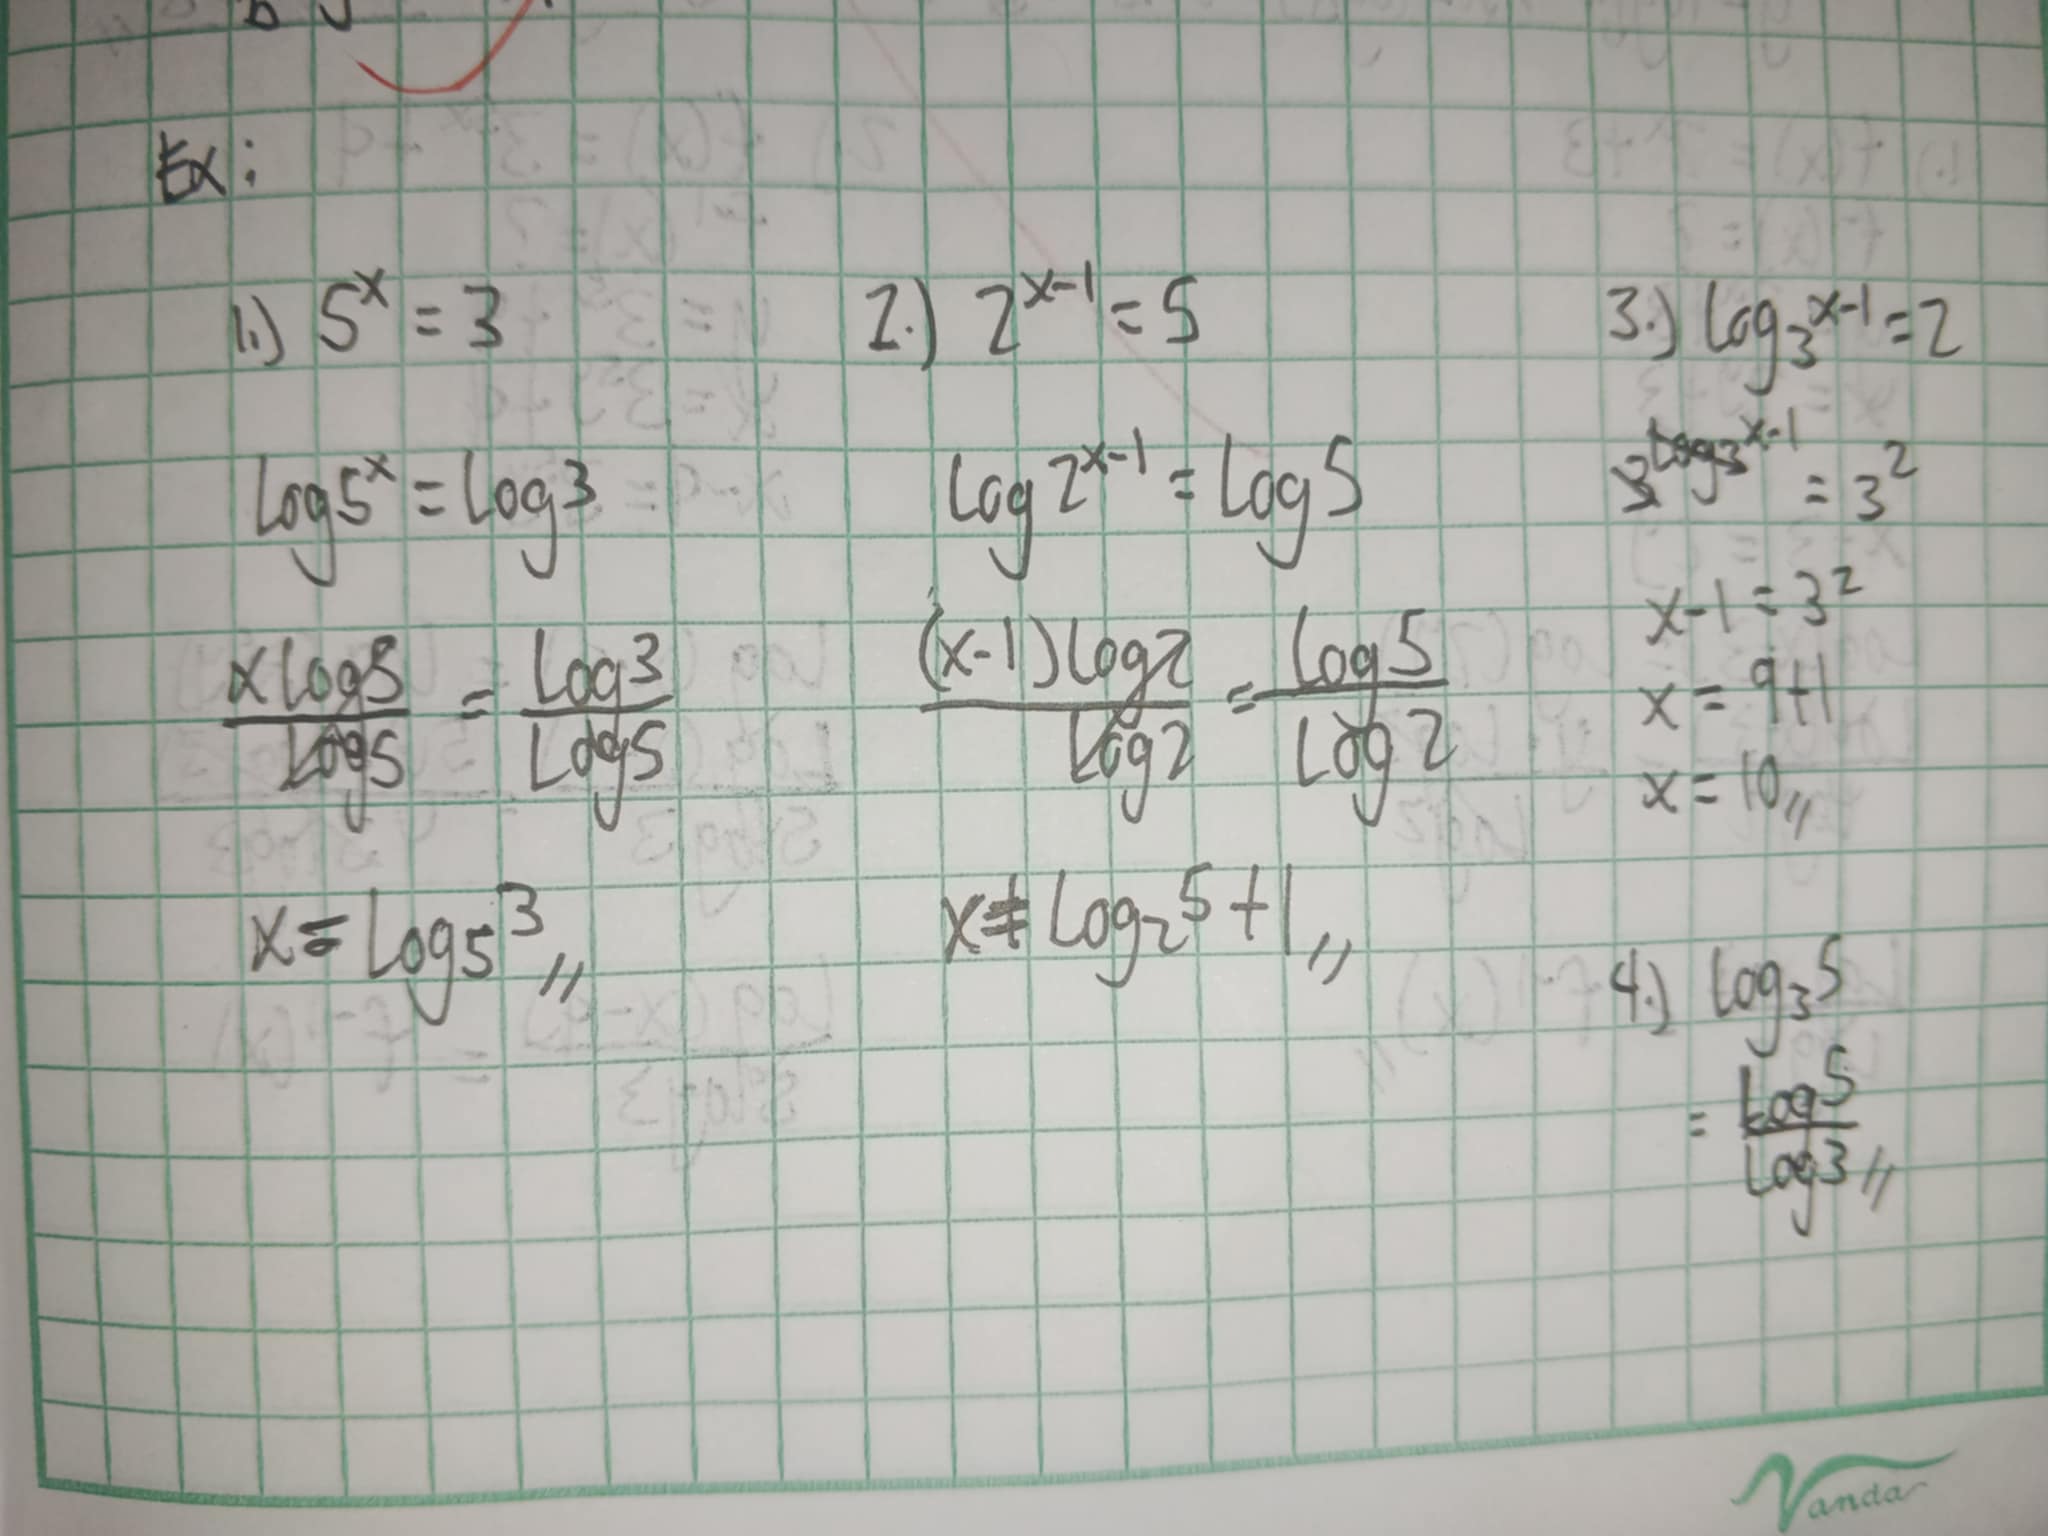 Ex:
1.) 5^x = 3
log5^x = log3
x log5 / log5 = log3 / log5
x = log₅3 //
2.) 2^(x-1) = 5
log2^(x-1) = log5
(x-1)log2 / log2 = log5 / log2
x = log₂5+1 //
3.) log₃^(x-1) = 2
3^(log₃^(x-1)) = 3²
x-1 = 3²
x = 9+1
x = 10 //
4.) log₃5
= log5 / log3 //
Vanda